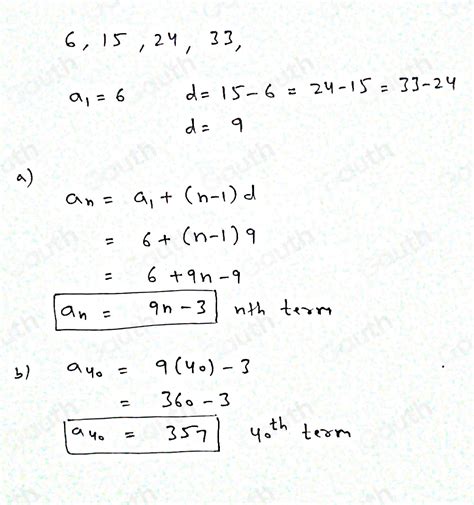 6, 15, 24, 33,
a₁ = 6 d = 15-6 = 24-15 = 33-24
d = 9
a)
aₙ = a₁ + (n-1) d
= 6 + (n-1) 9
= 6 + 9n - 9
aₙ = 9n - 3 nth term
b) a₄₀ = 9(40) - 3
= 360 - 3
a₄₀ = 357 40th term